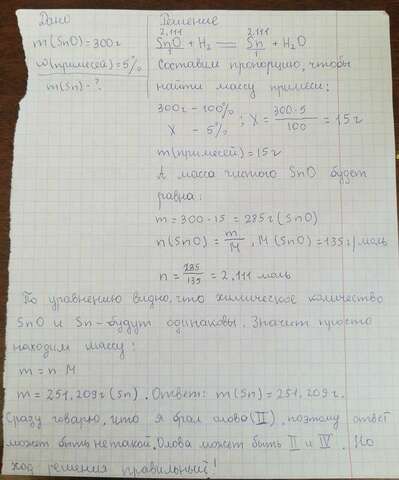 Дано
m(SnO)=300г
ω(примесей)=5%
m(Sn)-?
Решение
2,111 2,111
SnO + H₂ = Sn + H₂O
1 1
Составим пропорцию, чтобы
найти массу примеси:
300г - 100%
X - 5% ; X = 300·5/100 = 15г
m(примесей)=15г
А масса чистого SnO будет
равна:
m = 300 - 15 = 285г (SnO)
n(SnO) = m/M, M(SnO)=135г/моль
n = 285/135 = 2,111 моль
По уравнению видно, что химическое количество
SnO и Sn - будут одинаковы. Значит просто
находим массу:
m = n M
m = 251,209г (Sn). Ответ: m(Sn)=251,209г.
Сразу говорю, что я брал олово (II), поэтому ответ
может быть не такой. Олова может быть II и IV. Но
ход решения правильный!